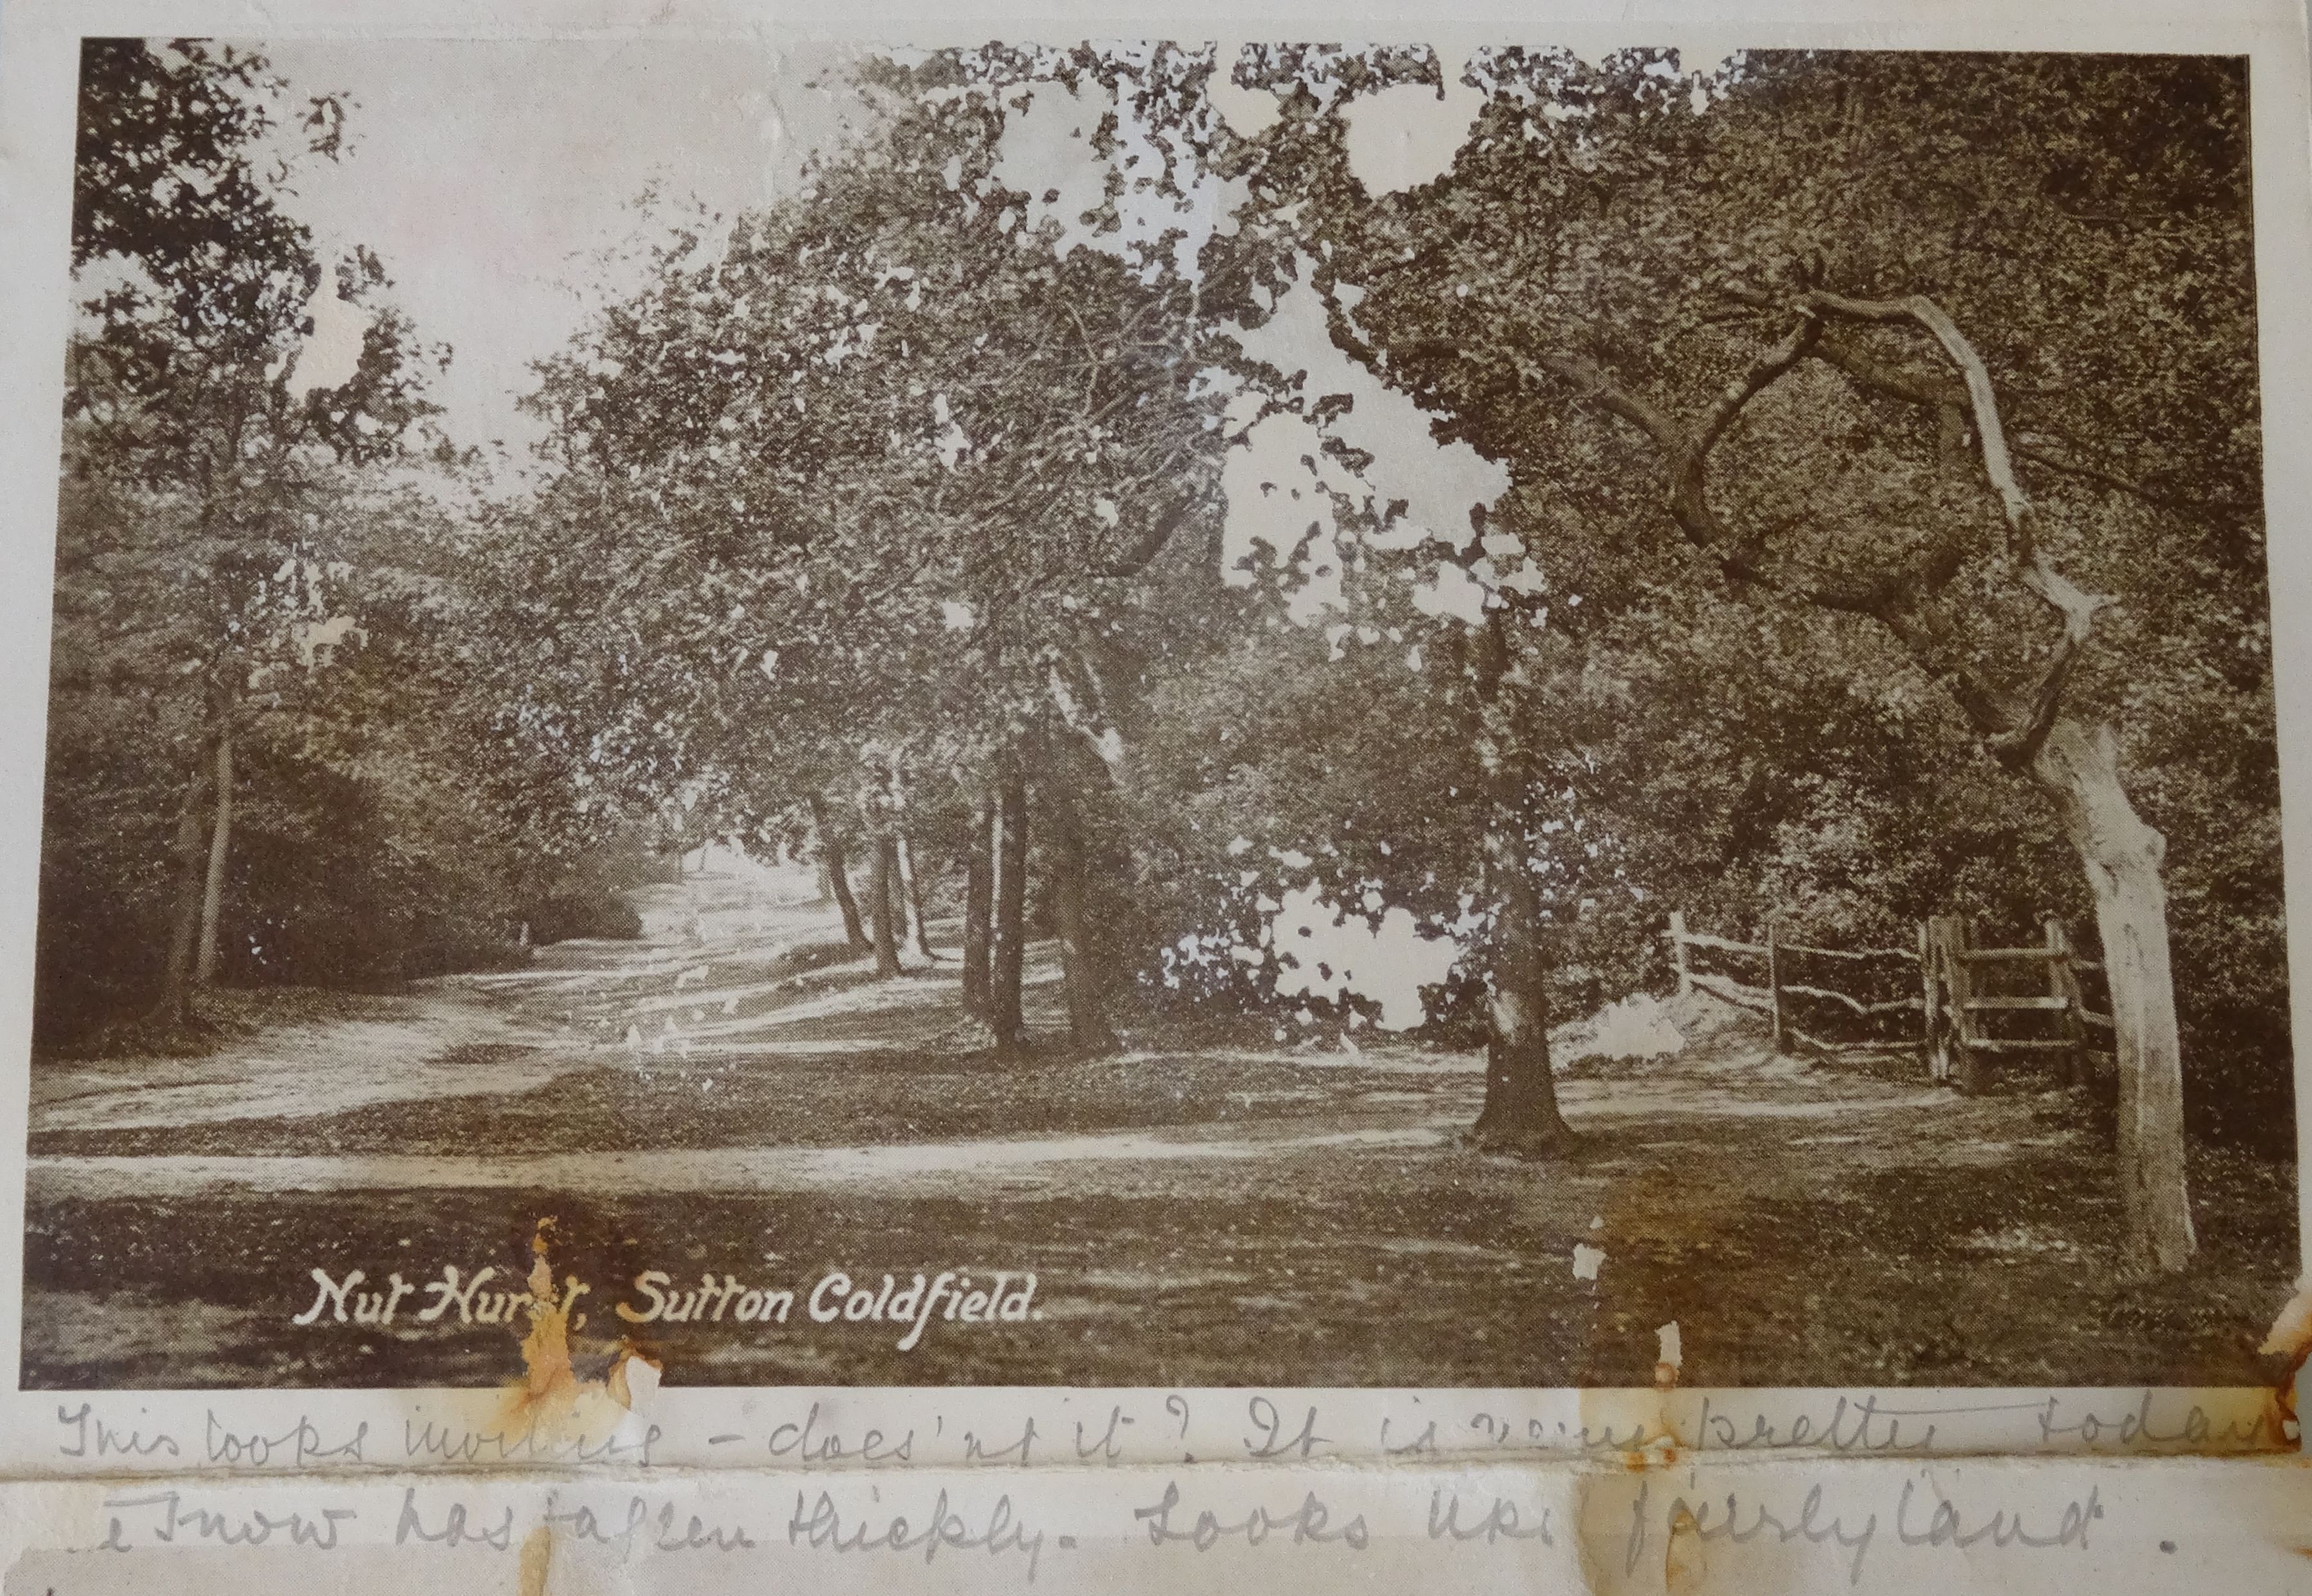 Nut Hurst, Sutton Coldfield.
This looks inviting – does'nt it? It is very pretty today
Snow has fallen thickly. Looks like fairyland.